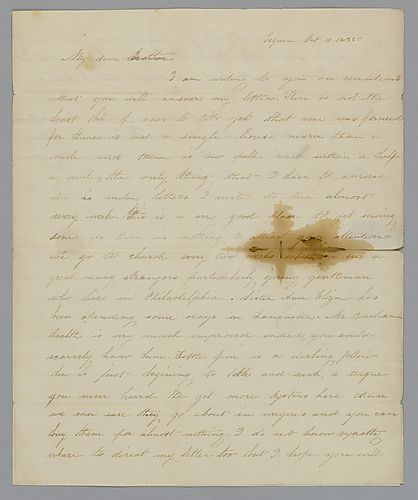 Oct 11 1835
My dear Brother
I am writing to you on conditions
that you will answer my letter. There is not the
least bit of news to tell you that ever was
for there is not a single house nearer than a
mile and there is no public road within a half
a mile, the only thing that I have to amuse
me is writing letters I write to Ma almost
every week. This is a very good place to get sewing
done for there is nothing to your attention
We go to church every two weeks where we see a
great many strangers particularly young gentlemen
who live in Philadelphia. Sister Ann Eliza has
been spending some days in Lancaster. Mr Buchanan
health is very much improved indeed you would
scarcely know him. Little Jim is a darling fellow
he is just beginning to talk and such a tongue
you never heard. We get more Oysters here than
we can use they go about in and you can
buy them for almost nothing. I do not know exactly
where to direct my letter too but I hope you will